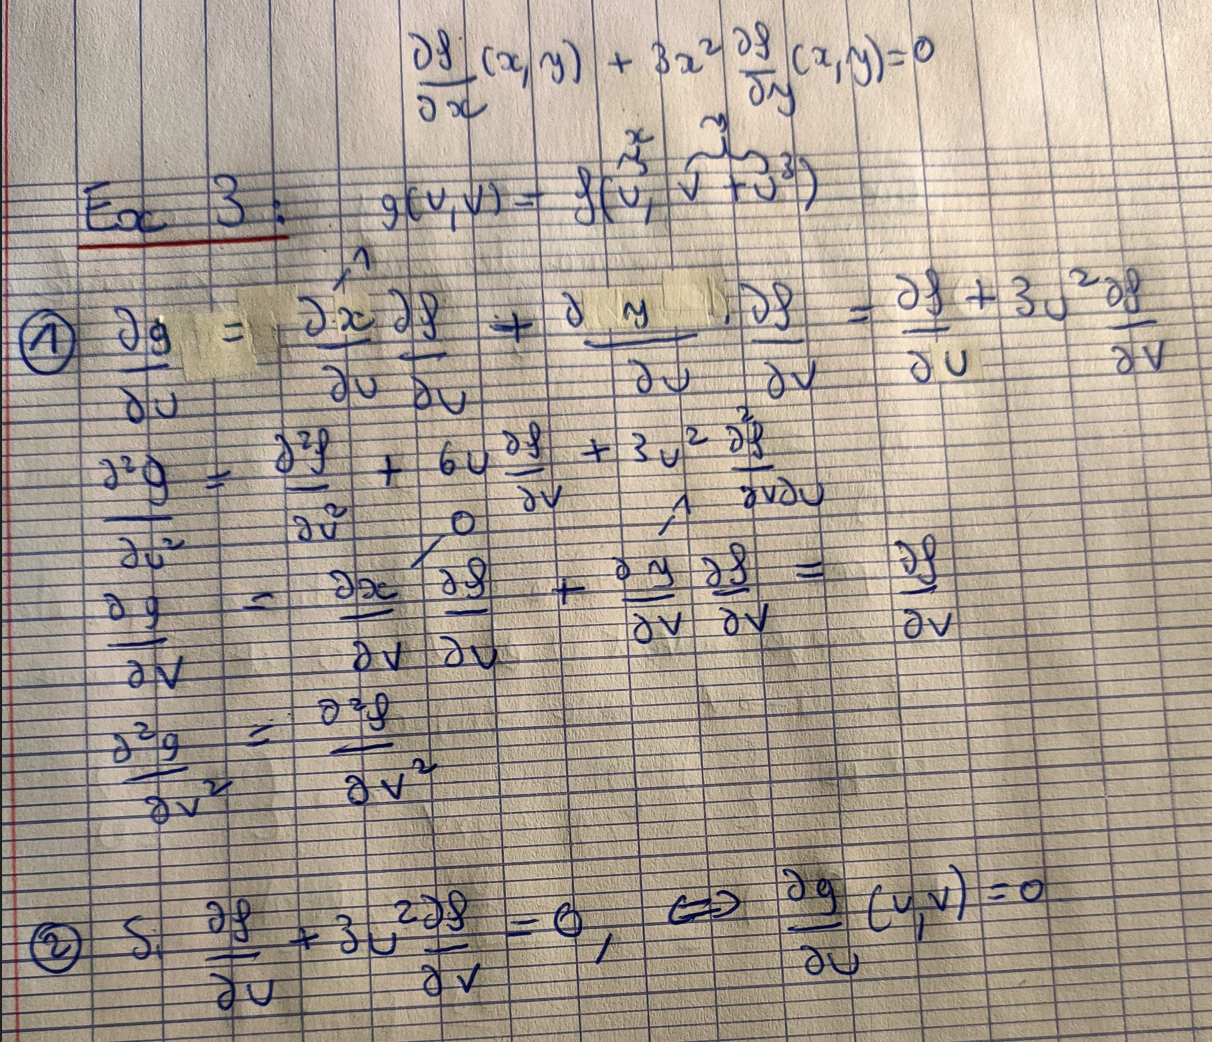 ∂f/∂x (x,y) + 3x² ∂f/∂y (x,y) = 0
x y
Ex 3 : g(u,v) = f(u, v + u³)
1
① ∂g/∂u = ∂x/∂u ∂f/∂u + ∂y/∂u . ∂f/∂v = ∂f/∂u + 3u² ∂f/∂v
∂²g/∂u² = ∂²f/∂u² + 6u ∂f/∂v + 3u² ∂²f/∂v∂u
0 1
∂g/∂v = ∂x/∂v ∂f/∂u + ∂y/∂v ∂f/∂v = ∂f/∂v
∂²g/∂v² = ∂²f/∂v²
② Si ∂f/∂u + 3u² ∂f/∂v = 0, ⟺ ∂g/∂u (u,v) = 0